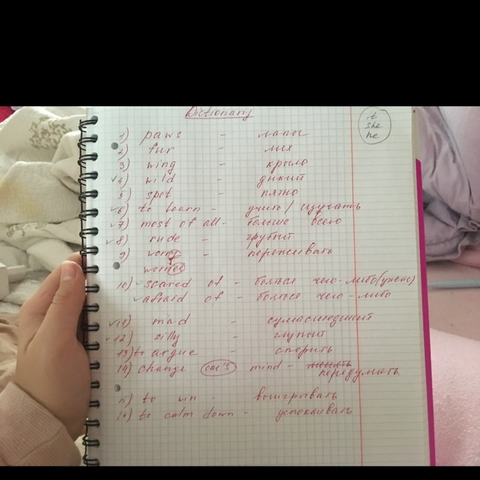 Dictionary
it
she
he
1) paws - лапы
2) fur - мех
3) wing - крыло
√4) wild - дикий
5) spot - пятно
√6) to learn - учить / изучать
√7) most of all - больше всего
√8) rude - грубый
9) worry - переживать
worries
10) scared of - боятся чего-либо
√afraid of - боятся чего-либо
√11) mad - сумасшедший
√12) silly - глупый
13) to argue - спорить
14) change one's mind - передумать
15) to win - выигрывать
16) to calm down - успокаивать